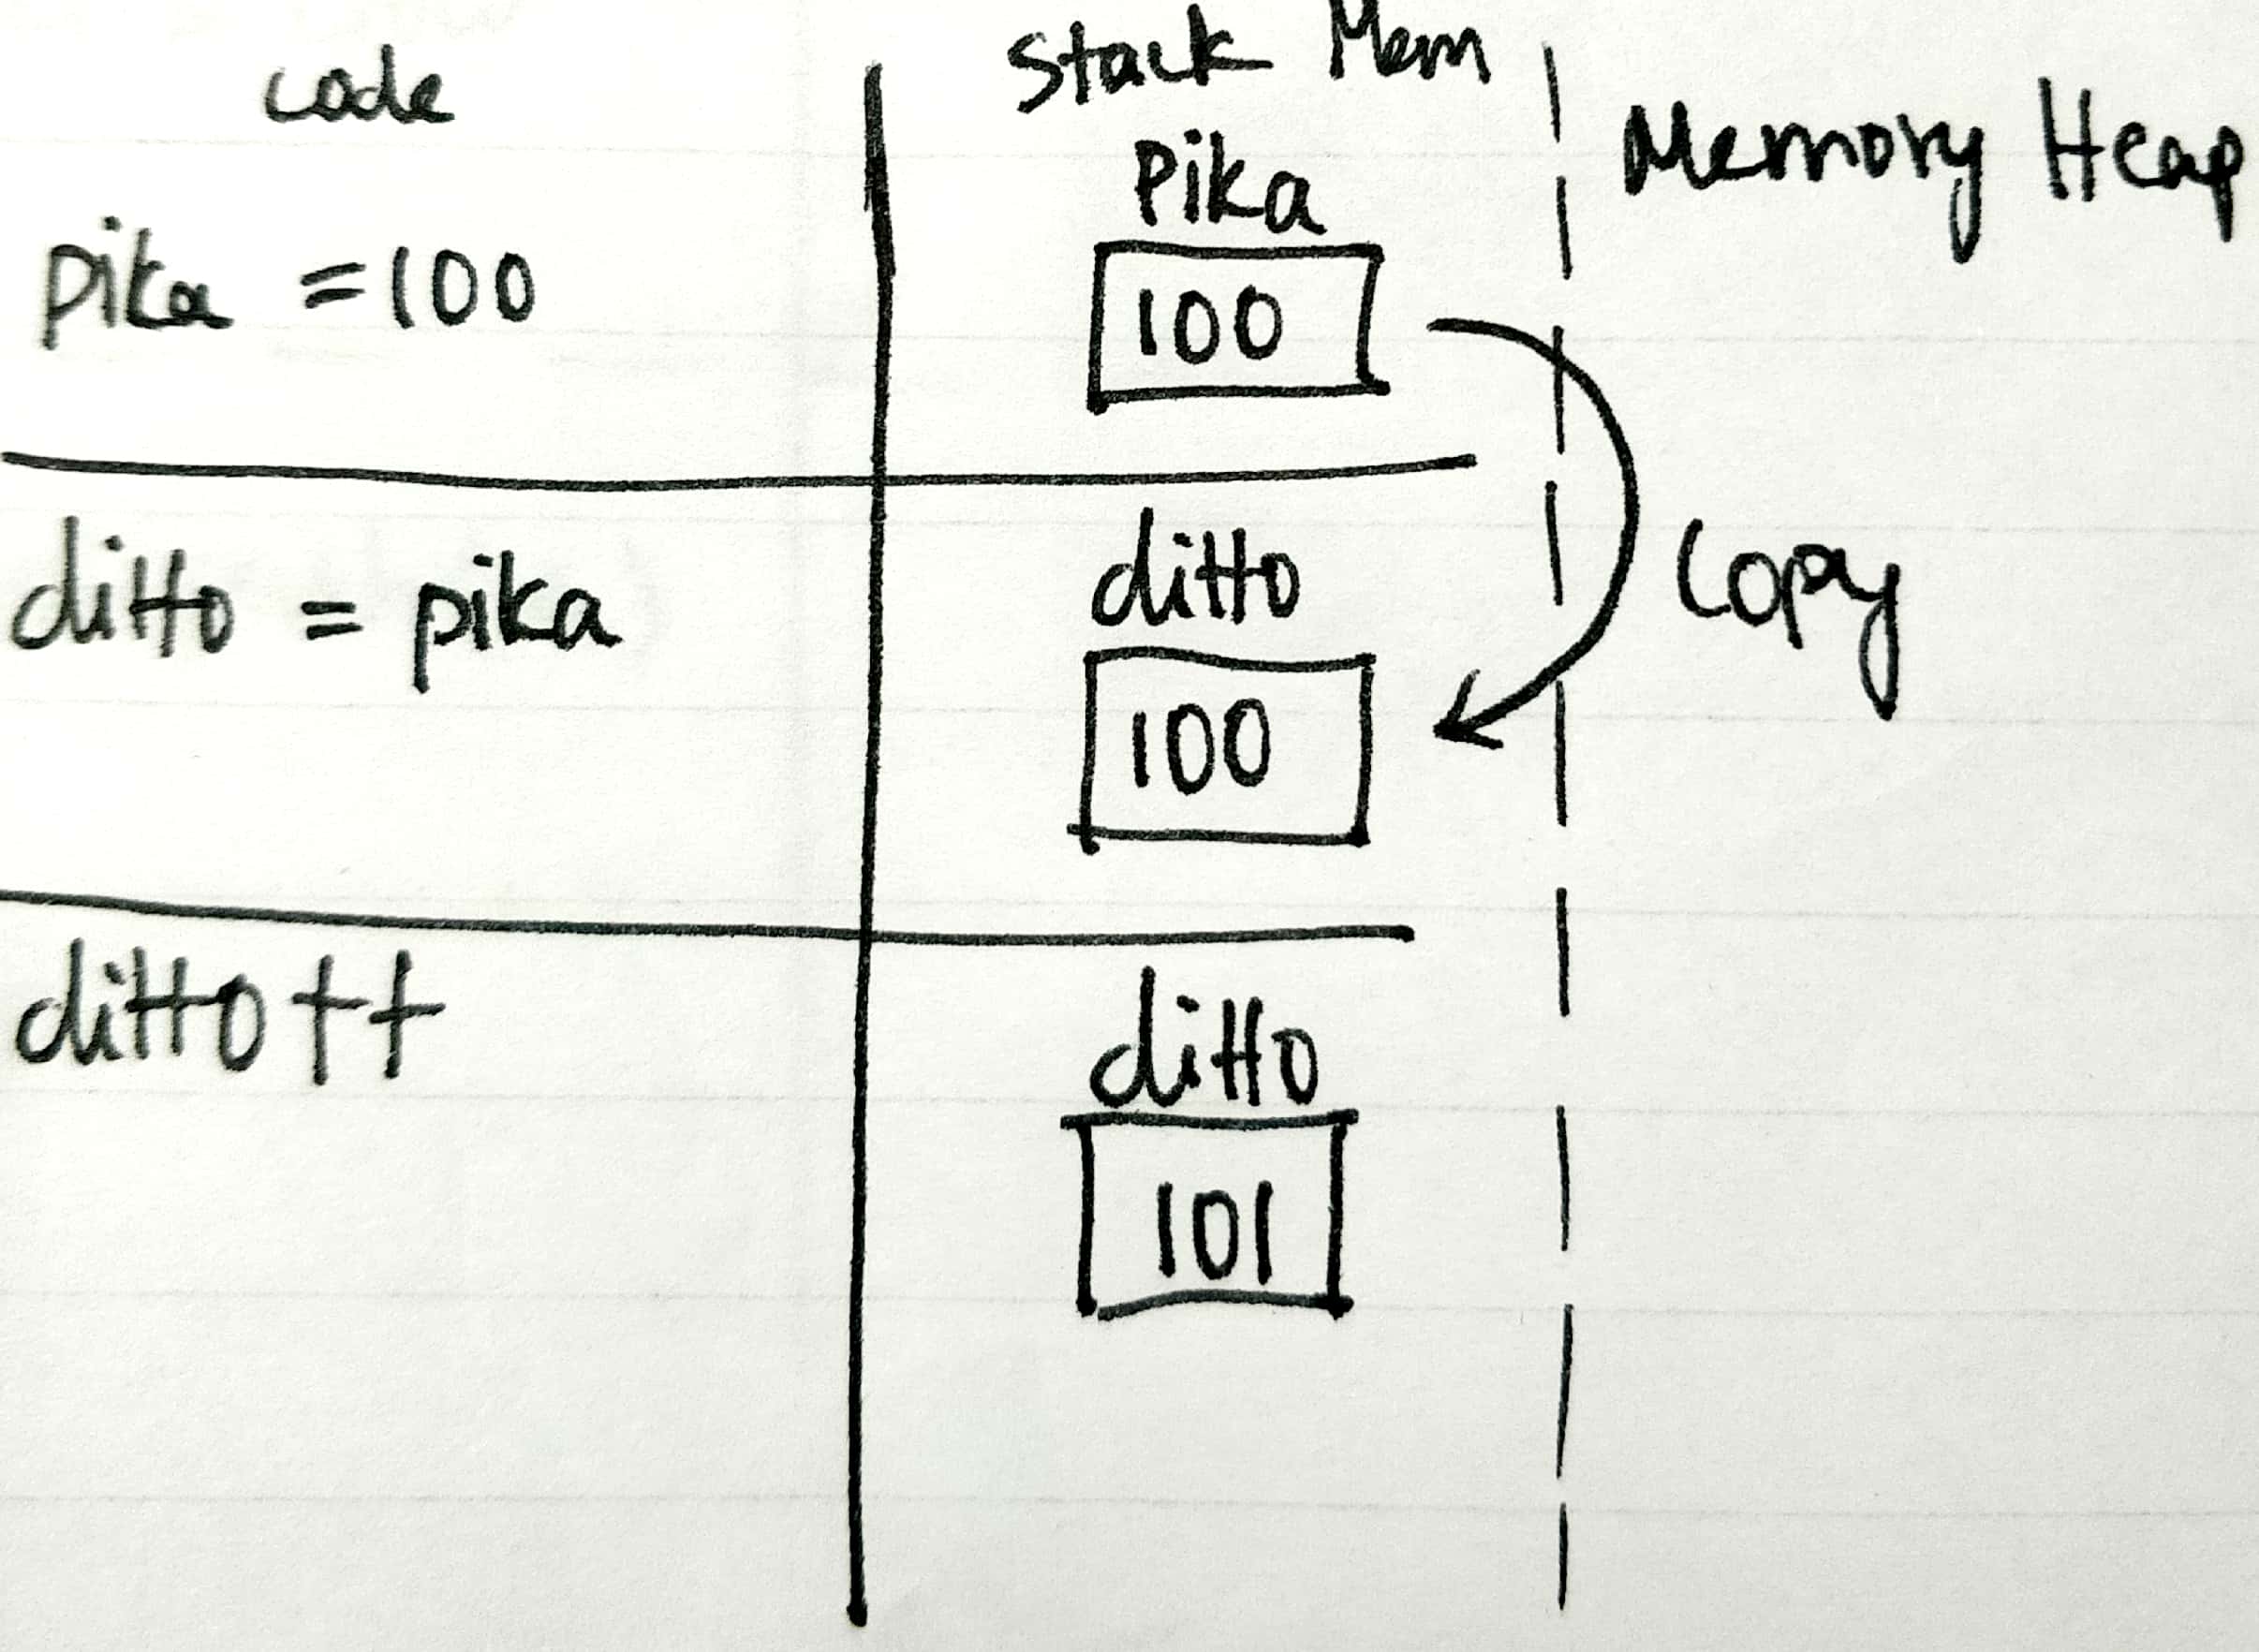 code
Stack Mem
Memory Heap
pika = 100
Pika
100
Copy
ditto = pika
ditto
100
ditto++
ditto
101